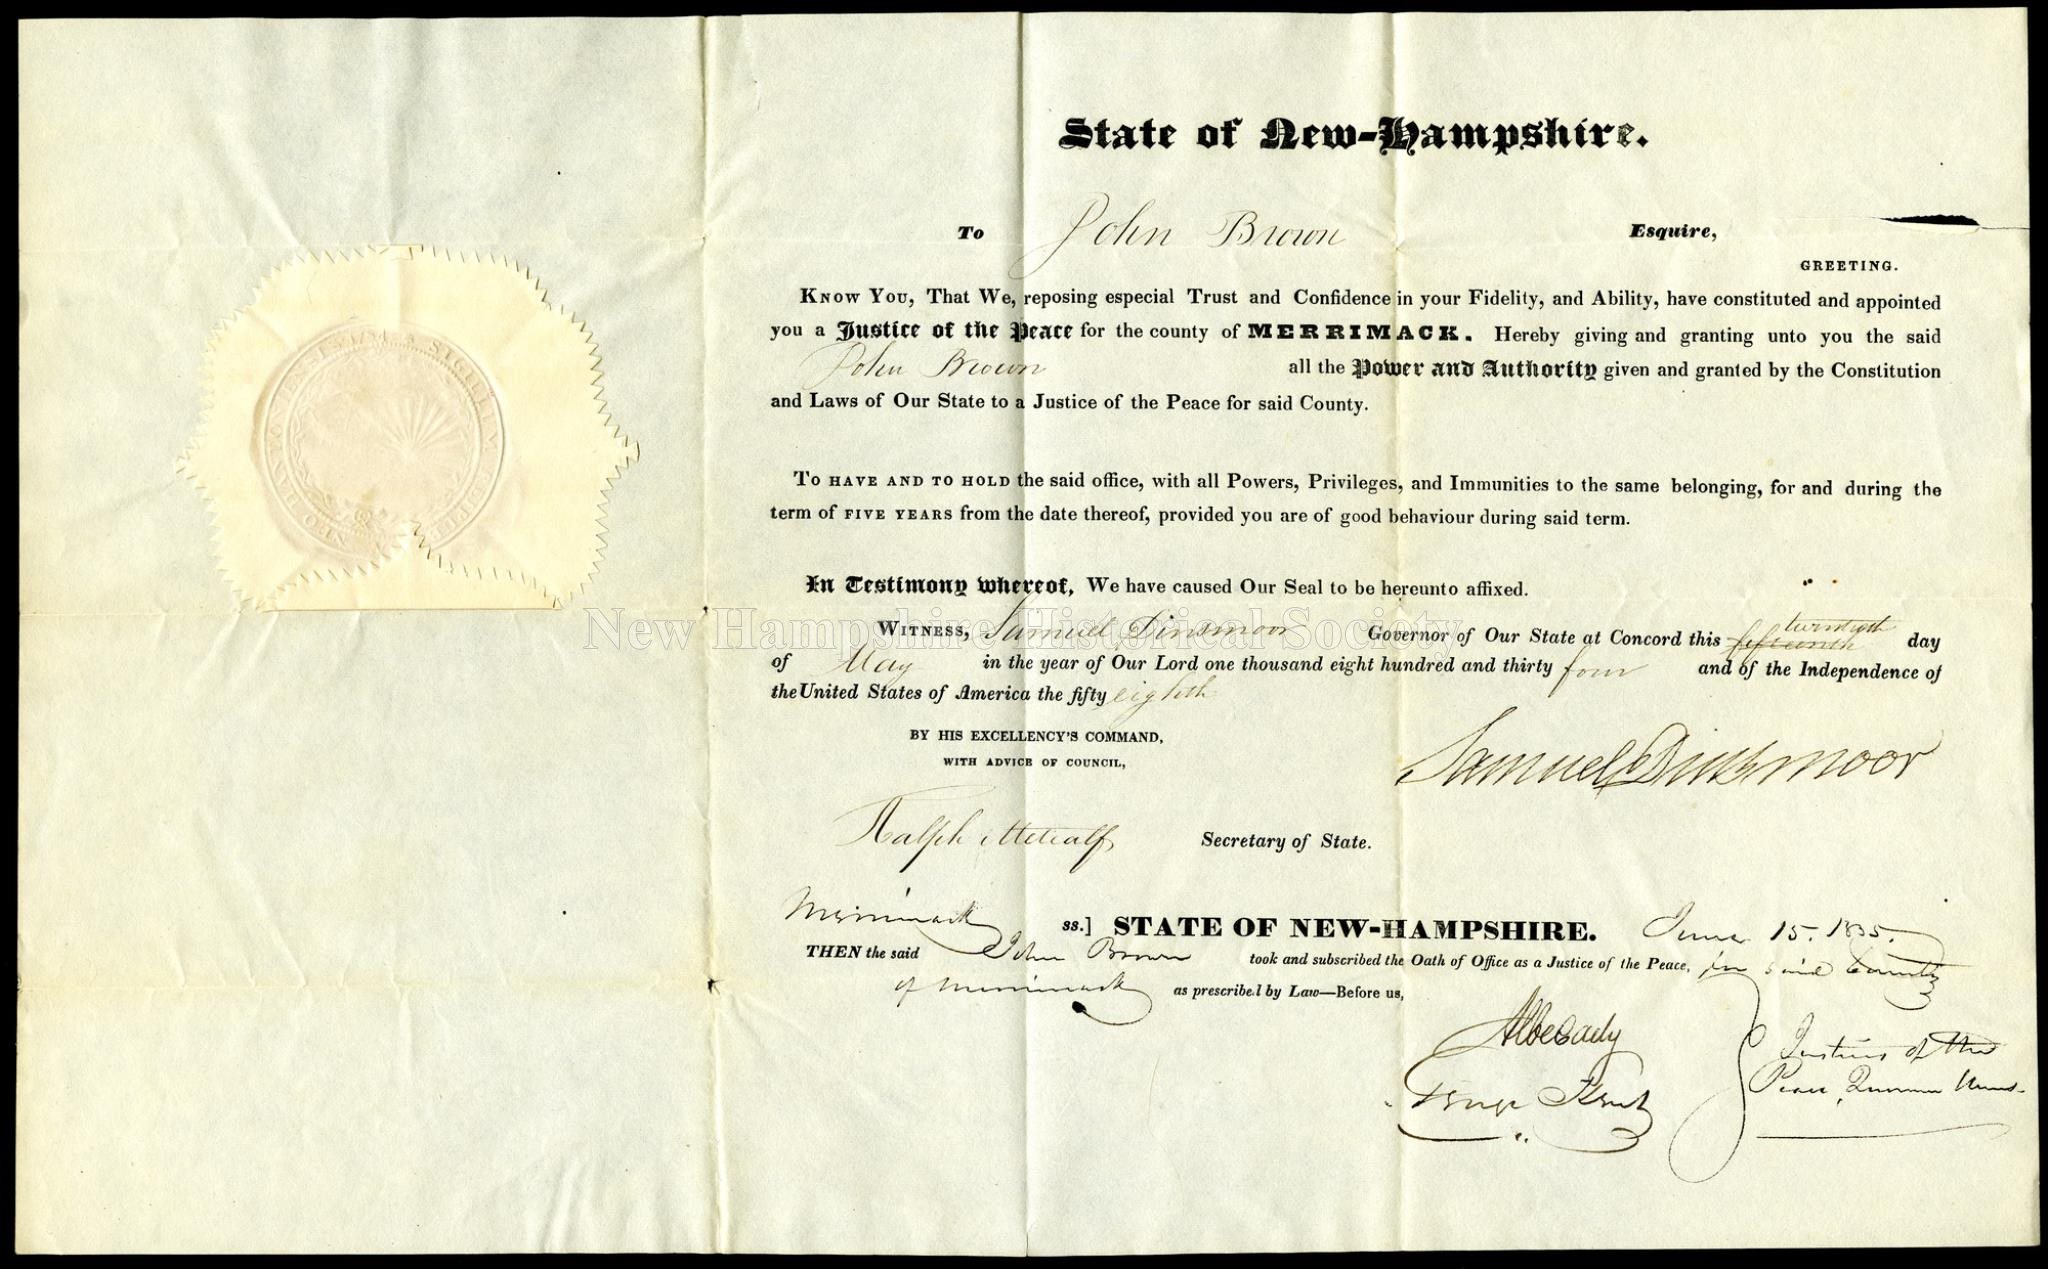 State of New-Hampshire.
To John Brown Esquire,
GREETING.
KNOW YOU, That We, reposing especial Trust and Confidence in your Fidelity, and Ability, have constituted and appointed
you a Justice of the Peace for the county of MERRIMACK. Hereby giving and granting unto you the said
John Brown all the Power and Authority given and granted by the Constitution
and Laws of Our State to a Justice of the Peace for said County.
TO HAVE AND TO HOLD the said office, with all Powers, Privileges, and Immunities to the same belonging, for and during the
term of FIVE YEARS from the date thereof, provided you are of good behaviour during said term.
In Testimony whereof, We have caused Our Seal to be hereunto affixed.
New Hampshire Historical Society
twentieth
WITNESS, Samuel Dinsmoor Governor of Our State at Concord this fifteenth day
of May in the year of Our Lord one thousand eight hundred and thirty four and of the Independence of
the United States of America the fifty eighth
BY HIS EXCELLENCY'S COMMAND,
WITH ADVICE OF COUNCIL,
Samuel Dinsmoor
Ralph Metcalf Secretary of State.
Merrimack ss.] STATE OF NEW-HAMPSHIRE. June 15. 1835.
THEN the said John Brown took and subscribed the Oath of Office as a Justice of the Peace, for said County
of Merrimack as prescribed by Law—Before us,
Albe Cady
George Kent
Justices of the
Peace, Quorum